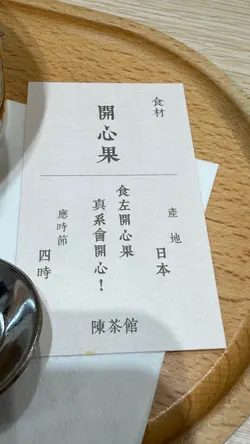 食材
開心果
產地
日本
食左開心果
真系會開心！
應時節
四時
陳茶館